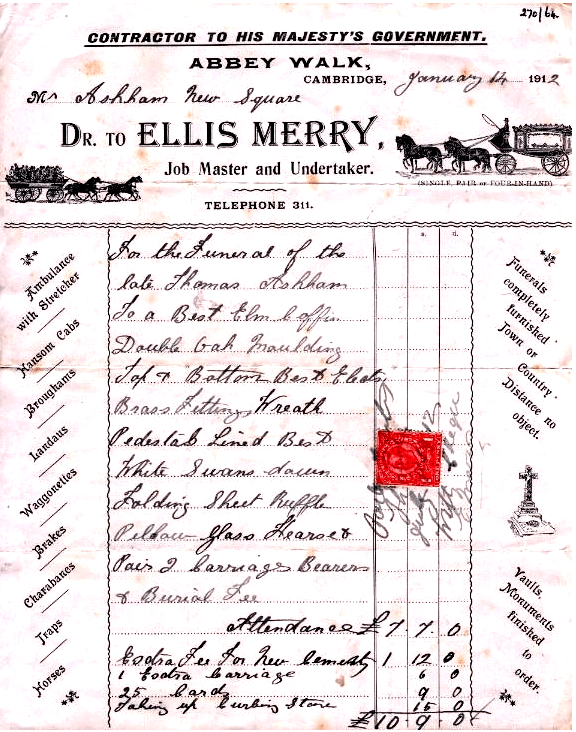 270/64.
CONTRACTOR TO HIS MAJESTY'S GOVERNMENT.
ABBEY WALK,
CAMBRIDGE, January 14 1912
Mr Ashham New Square
DR. TO ELLIS MERRY,
Job Master and Undertaker.
(SINGLE, PAIR or FOUR-IN-HAND)
TELEPHONE 311.
s. d.
For the Funeral of the
late Thomas Ashham
To a Best Elm Coffin
Double Oak Moulding
Top & Bottom Best Elects
Brass Fittings Wreath
Pedestals Lined Best
White Swans down
Folding Sheet Ruffle
Pillow Glass Hearse &
Pair 2 Carriages Bearers
& Burial Fee
Attendance £ 7 . 7 . 0
Exstra Fee For New Cemesty 1 12 0
1 Exstra Carriage 6 0
25 Cards 9 0
Taking up Curbing Stone 15 0
£10 . 9 . 0
Ambulance
with Stretcher
Hansom Cabs
Broughams
Landaus
Waggonettes
Brakes
Charabanes
Traps
Horses
Funerals
completely
furnished
Town or
Country
Distance no
object.
Vaults,
Monuments
finished
to
order.